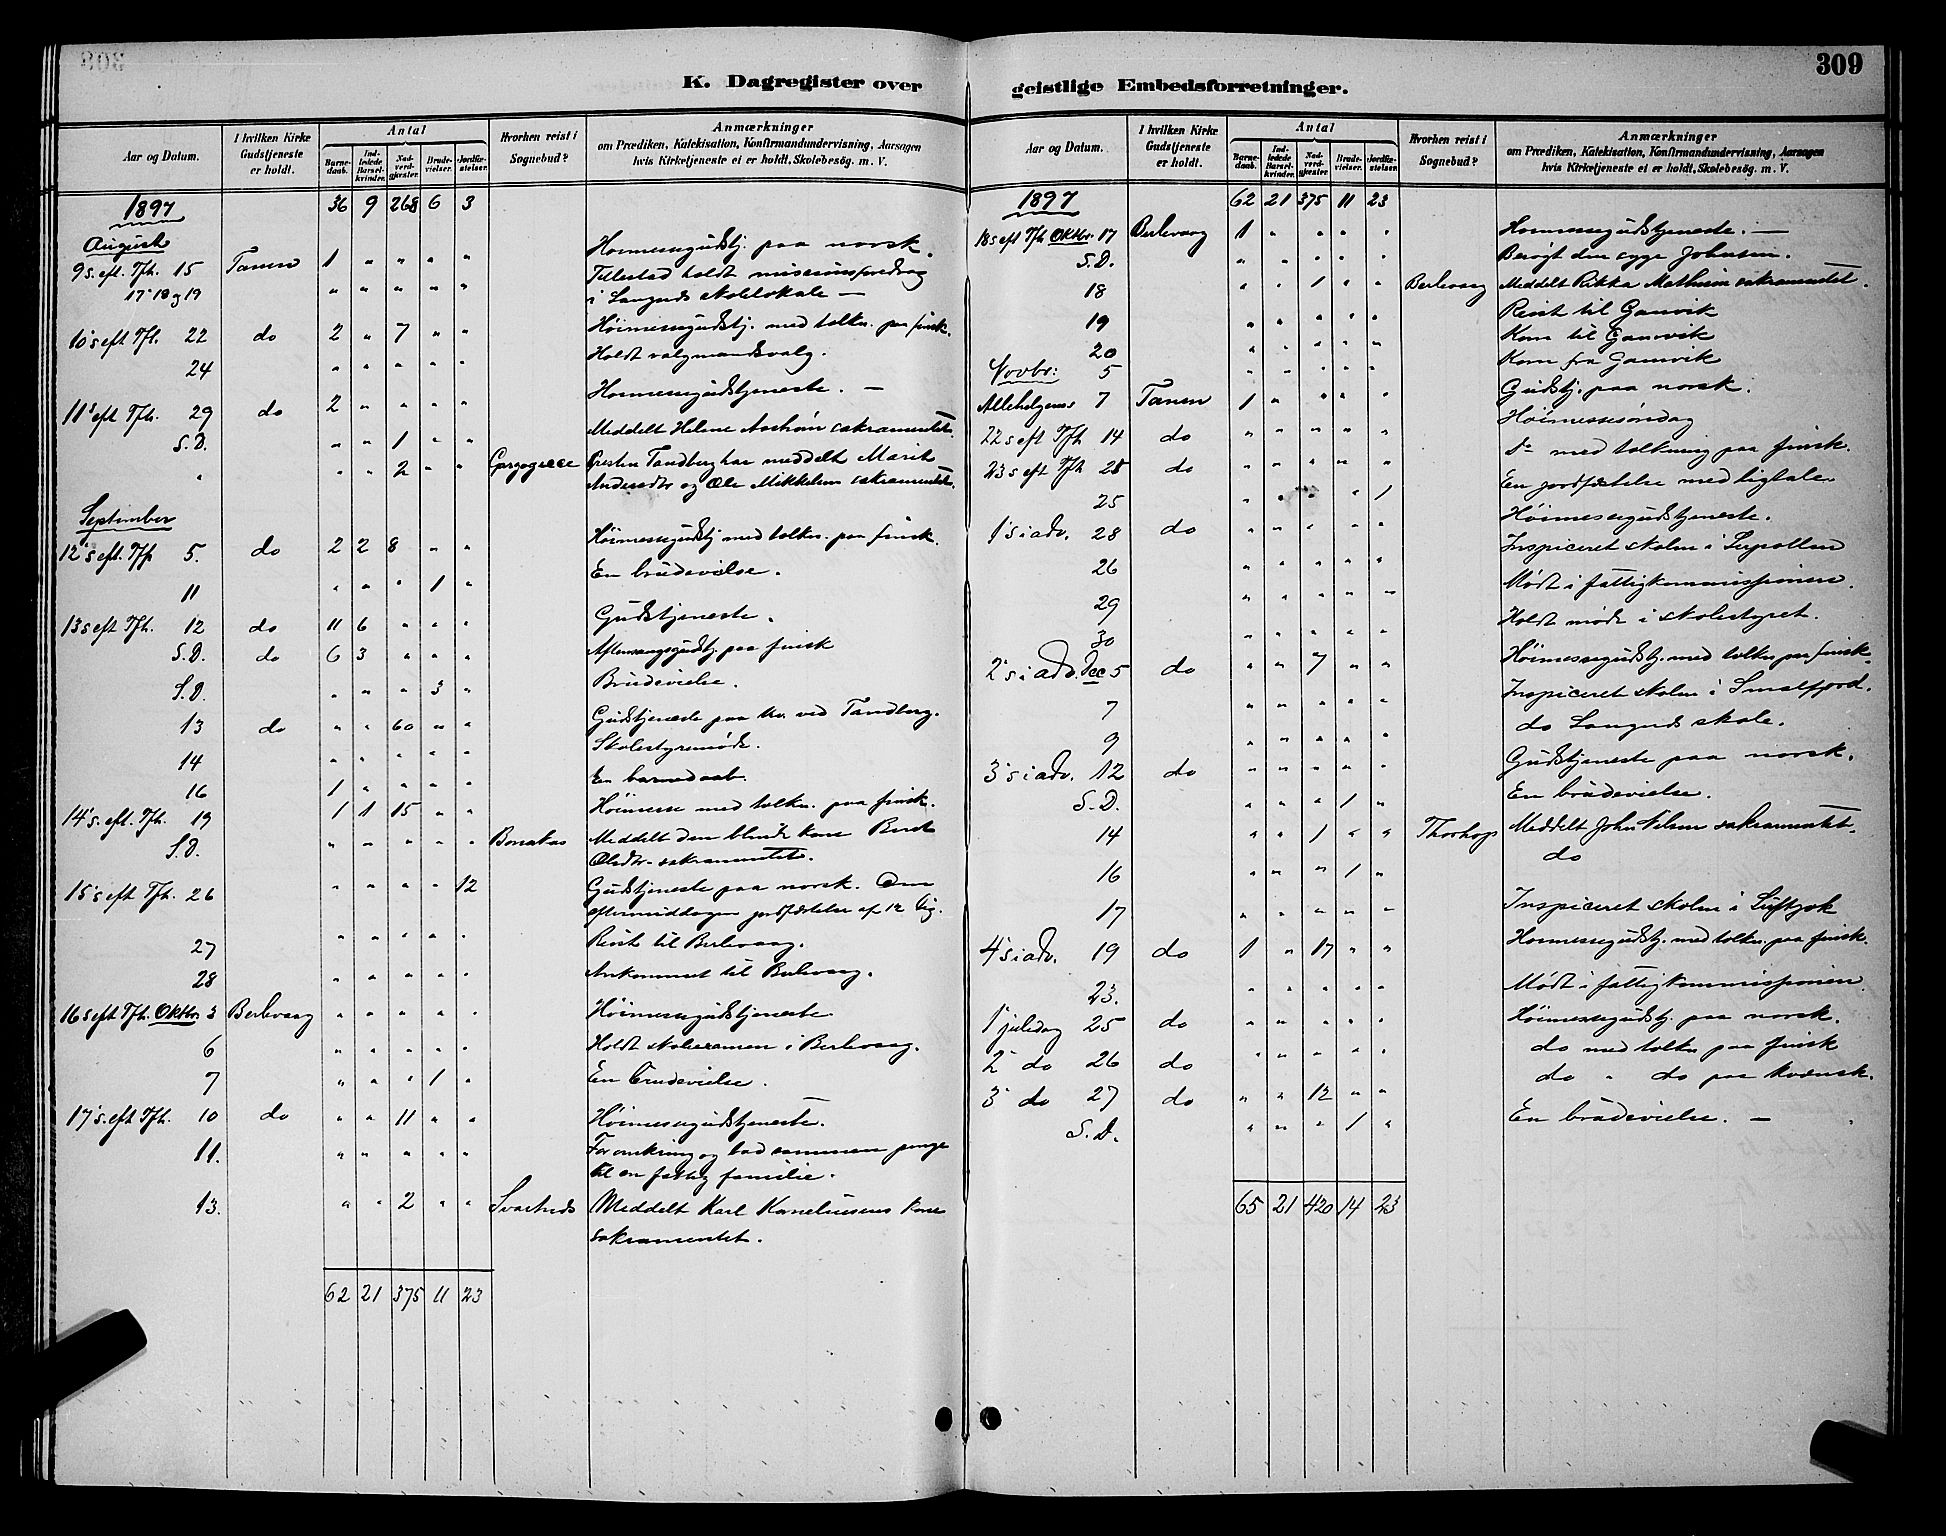 309
K. Dagregister over geistlige Embedsforretninger.
Aar og Datum.
I hvilken Kirke Gudstjeneste er holdt.
Antal
Barnedaab.
Indledede Barselkvinder.
Nadverdgjester.
Brudevielser.
Jordfæstelser.
Hvorhen reist i Sognebud?
Anmærkninger
om Prædiken, Katekisation, Konfirmandundervisning, Aarsagen
hvis Kirketjeneste ei er holdt, Skolebesøg. m. V.
1897 36 9 268 6 3
August Høimessegudstj. paa norsk.
9 s. eft. Tfh. 15 Tanen 1 " " " " Tillestad holdt missionsforedrag
17 18 og 19 " " " " " i Langnæs skolelokale —
10's eft Tfh. 22 do 2 " 7 " " Høimessegudstj. med tolkn. paa finsk.
24 " " " " " Holdt valgmandsvalg.
11's eft Tfh. 29 do 2 " " " " Høimessegudstjeneste. —
S.D. " " 1 " " Meddelt Helene sakramentet.
" " " 2 " " Presten Tandberg har meddelt Marit
Andersdtr og Ole Mikkelsen sakramentet.
September
12's eft. Tfh 5. do 2 2 8 " " Høimessegudstj med tolkn. paa finsk.
11 " " " 1 " En brudevielse.
13 s eft Tfh. 12 do 11 6 " " " Gudstjeneste.
S.D. do 6 3 " " " Aftensangsgudstj. paa finsk
S.D. " " " 3 " Brudevielse.
13 do " " 60 " " Gudstjeneste paa ved Tandberg.
14 " " " " " Skolestyremøde.
16 1 " " " " En barnedaab.
14's. eft. Tfh. 19 1 1 15 " " Høimesse med tolkn. paa finsk.
S.D. " " " " " Bonakas Meddelt den blinde kone Berit
Olsdtr. sakramentet.
15's eft Tfh. 26 " " " " 12 Gudstjeneste paa norsk. Om
eftermiddagen jordfæstelse af 12 lig.
27 " " " " " Reist til Berlevaag.
28 " " " " " Ankommet til Berlevaag.
16 s eft Tfh. Oktbr 3 Berlevaag " " " " " Høimessegudstjeneste
6 " " " " " Holdt skoleexamen i Berlevaag.
7 " " " 1 " En brudevielse.
17's. eft Tfh. 10 do " " 11 " " Høimessegudstjeneste.
11. " " " " " For omkring og bad sammen penge
til en fattig familie.
13. " " 2 " " Svartnæs Meddelt Karl Korneliussens kone
sakramentet.
62 21 375 11 23
Aar og Datum.
I hvilken Kirke Gudstjeneste er holdt.
Antal
Barnedaab.
Indledede Barselkvinder.
Nadverdgjester.
Brudevielser.
Jordfæstelser.
Hvorhen reist i Sognebud?
Anmærkninger
om Prædiken, Katekisation, Konfirmandundervisning, Aarsagen
hvis Kirketjeneste ei er holdt, Skolebesøg. m. V.
1897 62 21 375 11 23
18 s eft Tfh Oktbr. 17 Berlevaag 1 " " " " Høimessegudstjeneste. —
S.D. " " " " " Besøgt den syge Johnsen.
18 " " 1 " " Berlevaag Meddelt Rikka Mathisen sakramentet.
19 " " " " " Reist til Gamvik
20 " " " " " Kom til Gamvik
Novbr: 5 " " " " " Kom fra Gamvik
Allehelgens 7 Tanen 1 " " " " Gudstj. paa norsk.
22 s eft Tfh 14 do " " " " " Høimessesøndag
23 s eft Tfh 28 do " " " " " do med tolkning paa finsk.
25 " " " " 1 En jordfæstelse med ligtale.
1's i adv. 28 do " " " " " Høimessegudstjeneste.
26 " " " " " Inspiceret skolen i
29 " " " " " Mødt i fattigkommissionen.
30 " " " " " Holdt møde i skolestyret.
2's i adv. Dec 5 do " " 7 " " Høimessegudstj. med tolkn paa finsk.
7 " " " " " Inspiceret skolen i Smalfjord.
9 " " " " " do Langnæs skole.
3's i adv. 12 do " " " " " Gudstjeneste paa norsk.
S.D. " " " 1 " En brudevielse.
14 " " 1 " " Thorhop Meddelt John Nilsen sakramentet.
16 " " " 1 " do
17 " " " " " Inspiceret skolen i Luftjok
4's i adv. 19 do 1 " 17 " " Høimessegudstj. med tolkn. paa finsk.
23. " " " " " Mødt i fattigkommissionen.
1' juledag 25 do " " " " " Høimessegudstj. paa norsk.
2' do 26 do " " " " " do med tolkn paa finsk
3' do 27 do " " 12 " " do " do paa kvænsk.
S.D. " " " 1 " En brudevielse. —
65 21 420 14 23